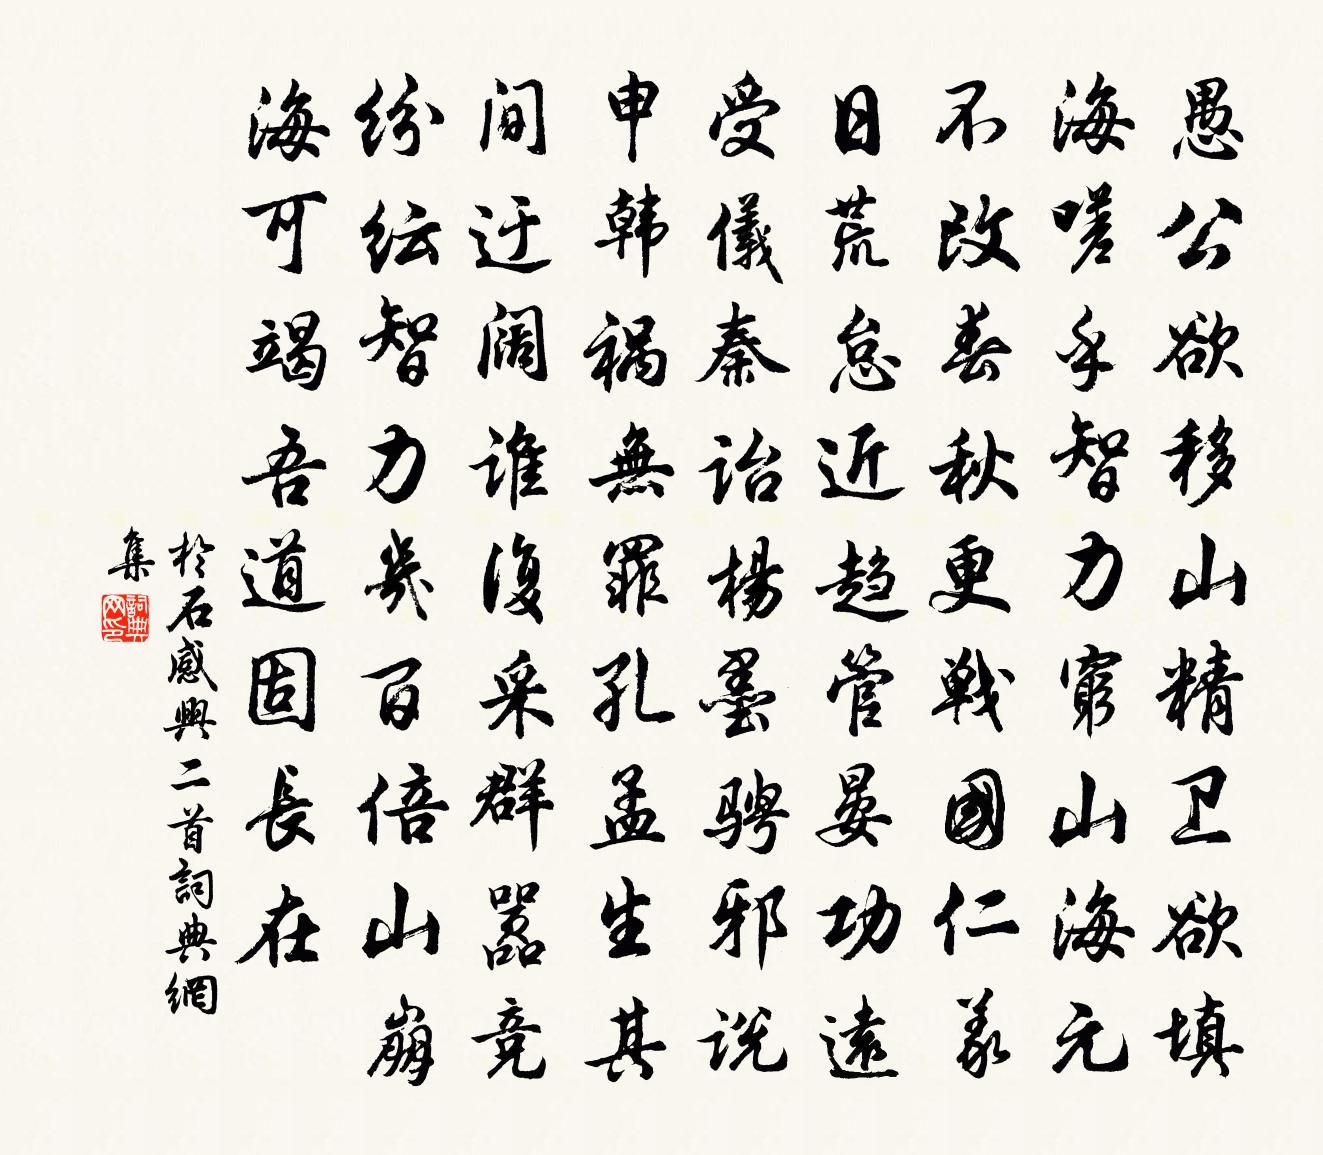 愚公欲移山精卫欲填
海嗟乎智力穷山海元
不改春秋更戦國仁義
日荒怠近趋管晏功遠
受儀秦诒楊墨骋邪说
申韩禍無罪孔孟生其
间迂阔谁復采群嚣竞
纷纭智力幾百倍山崩
海可竭吾道固長在
於石感興二首詞典網
集
詞典网印